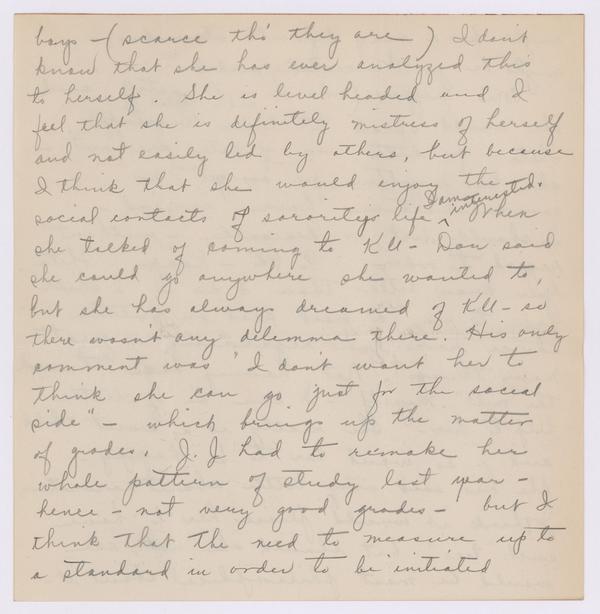 boys - (scarce tho' they are) I don't
know that she has ever analyzed this
to herself. She is level headed and I
feel that she is definitely mistress of herself
and not easily led by others, but because
I think that she would enjoy the
social contacts of sorority life I am interested. When
she talked of coming to KU - Don said
she could go anywhere she wanted to,
but she has always dreamed of KU - so
there wasn't any dilemma there. His only
comment was "I don't want her to
think she can go just for the social
side" - which brings up the matter
of grades. J.J had to remake her
whole pattern of study last year -
hence - not very good grades - but I
think that the need to measure up to
a standard in order to be initiated